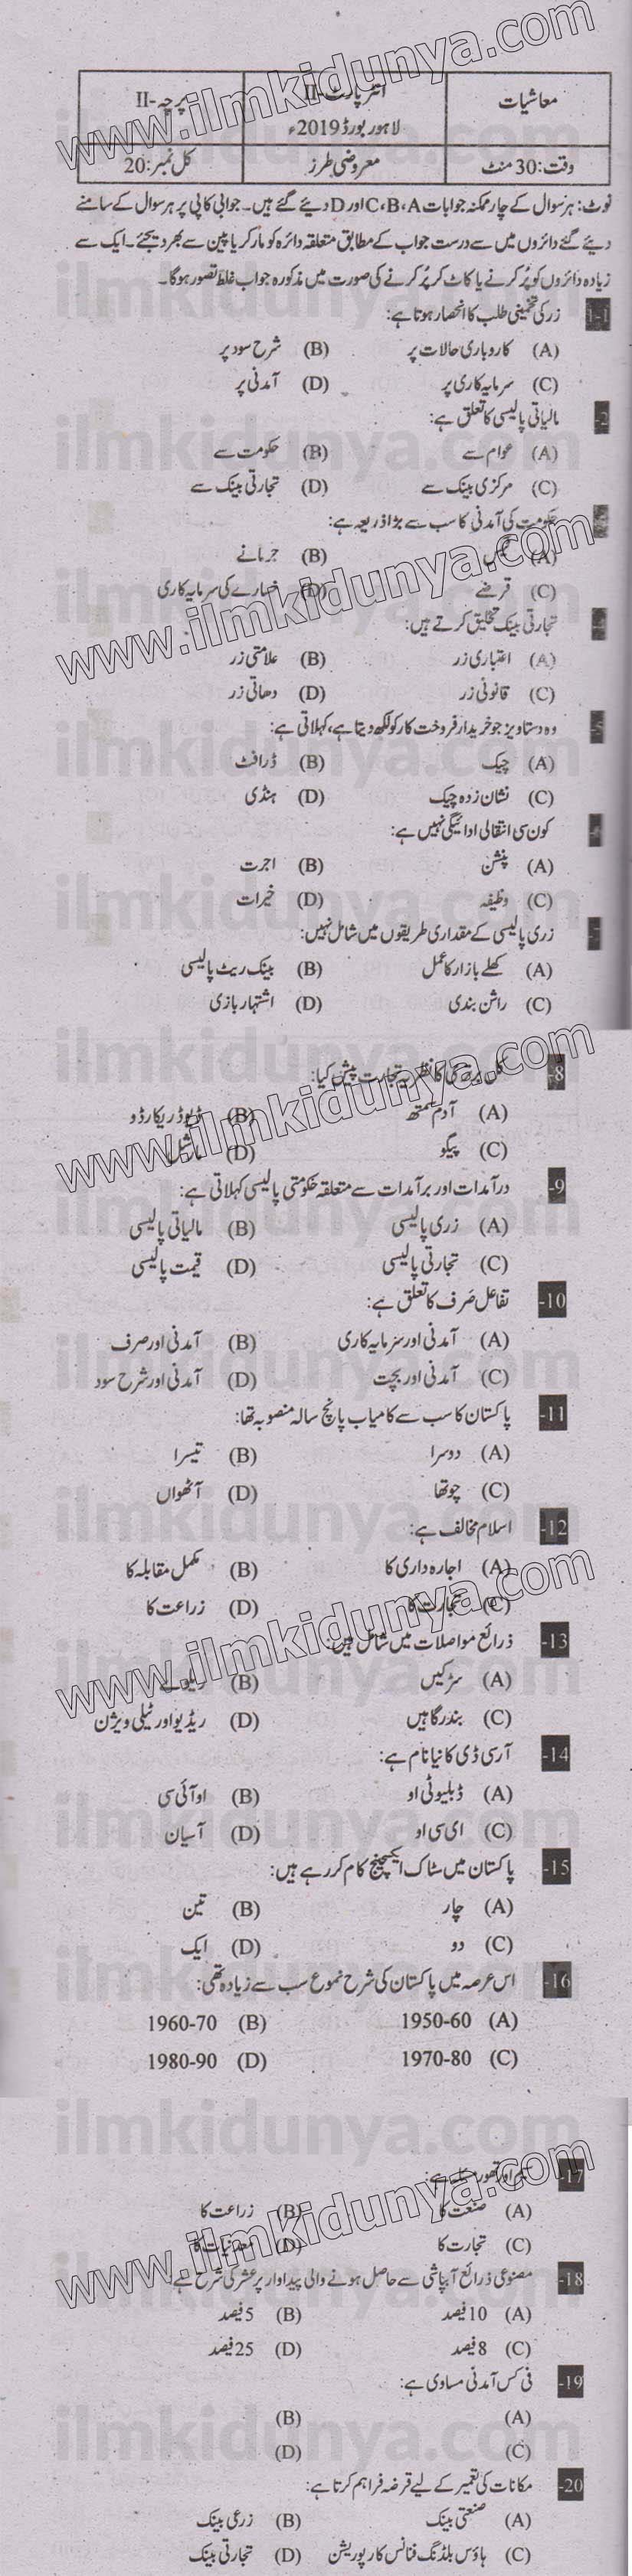 www.ilmkidunya.com
معاشیات
انٹر پارٹ-II
پرچہ-II
لاہور بورڈ 2019ء
وقت: 30 منٹ
معروضی طرز
کل نمبر: 20
نوٹ: ہر سوال کے چار ممکنہ جوابات A،B،C اور D دیئے گئے ہیں۔ جوابی کاپی پر ہر سوال کے سامنے
دیئے گئے دائروں میں سے درست جواب کے مطابق متعلقہ دائرہ کو مارکر یا پین سے بھر دیجئے۔ ایک سے
زیادہ دائروں کو پُر کرنے یا کاٹ کر پُر کرنے کی صورت میں مذکورہ جواب غلط تصور ہوگا۔
1-1 زر کی تخمینی طلب کا انحصار ہوتا ہے:
(A) کاروباری حالات پر (B) شرح سود پر
(C) سرمایہ کاری پر (D) آمدنی پر
-2 مالیاتی پالیسی کا تعلق ہے:
(A) عوام سے (B) حکومت سے
(C) مرکزی بینک سے (D) تجارتی بینک سے
حکومت کی آمدنی کا سب سے بڑا ذریعہ ہے:
(A) (B) جرمانے
(C) قرضے (D) خسارے کی سرمایہ کاری
تجارتی بینک تخلیق کرتے ہیں:
(A) اعتباری زر (B) علامتی زر
(C) قانونی زر (D) دھاتی زر
-5 وہ دستاویز جو خریدار فروخت کار کو لکھ دیتا ہے، کہلاتی ہے:
(A) چیک (B) ڈرافٹ
(C) نشان زدہ چیک (D) ہنڈی
کون سی انتقالی ادائیگی نہیں ہے:
(A) پنشن (B) اجرت
(C) وظیفہ (D) خیرات
زری پالیسی کے مقداری طریقوں میں شامل نہیں:
(A) کھلے بازار کا عمل (B) بینک ریٹ پالیسی
(C) راشن بندی (D) اشتہار بازی
-8 کا نظریہ تجارت پیش کیا:
(A) آدم سمتھ (B) ڈیوڈ ریکارڈو
(C) پیگو (D) مارشل
-9 درآمدات اور برآمدات سے متعلقہ حکومتی پالیسی کہلاتی ہے:
(A) زری پالیسی (B) مالیاتی پالیسی
(C) تجارتی پالیسی (D) قیمت پالیسی
-10 تفاعل صَرف کا تعلق ہے:
(A) آمدنی اور سرمایہ کاری (B) آمدنی اور صرف
(C) آمدنی اور بچت (D) آمدنی اور شرح سود
-11 پاکستان کا سب سے کامیاب پانچ سالہ منصوبہ تھا:
(A) دوسرا (B) تیسرا
(C) چوتھا (D) آٹھواں
-12 اسلام مخالف ہے:
(A) اجارہ داری کا (B) مکمل مقابلہ کا
(C) تجارت کا (D) زراعت کا
-13 ذرائع مواصلات میں شامل ہیں:
(A) سڑکیں (B) ریلوے
(C) بندرگاہیں (D) ریڈیو اور ٹیلی ویژن
-14 آر سی ڈی کا نیا نام ہے:
(A) ڈبلیو ٹی او (B) او آئی سی
(C) ای سی او (D) آسیان
-15 پاکستان میں سٹاک ایکسچینج کام کر رہے ہیں:
(A) چار (B) تین
(C) دو (D) ایک
-16 اس عرصہ میں پاکستان کی شرح نمو ع سب سے زیادہ تھی:
(A) 1950-60 (B) 1960-70
(C) 1970-80 (D) 1980-90
-17 اور تھور مسئلہ ہے:
(A) صنعت کا (B) زراعت کا
(C) تجارت کا (D) معدنیات کا
-18 مصنوعی ذرائع آبپاشی سے حاصل ہونے والی پیداوار پر عشر کی شرح ہے:
(A) 10 فیصد (B) 5 فیصد
(C) 8 فیصد (D) 25 فیصد
-19 فی کس آمدنی مساوی ہے:
(A) (B)
(C) (D)
-20 مکانات کی تعمیر کے لیے قرضہ فراہم کرتا ہے:
(A) صنعتی بینک (B) زرعی بینک
(C) ہاؤس بلڈنگ فنانس کارپوریشن (D) تجارتی بینک